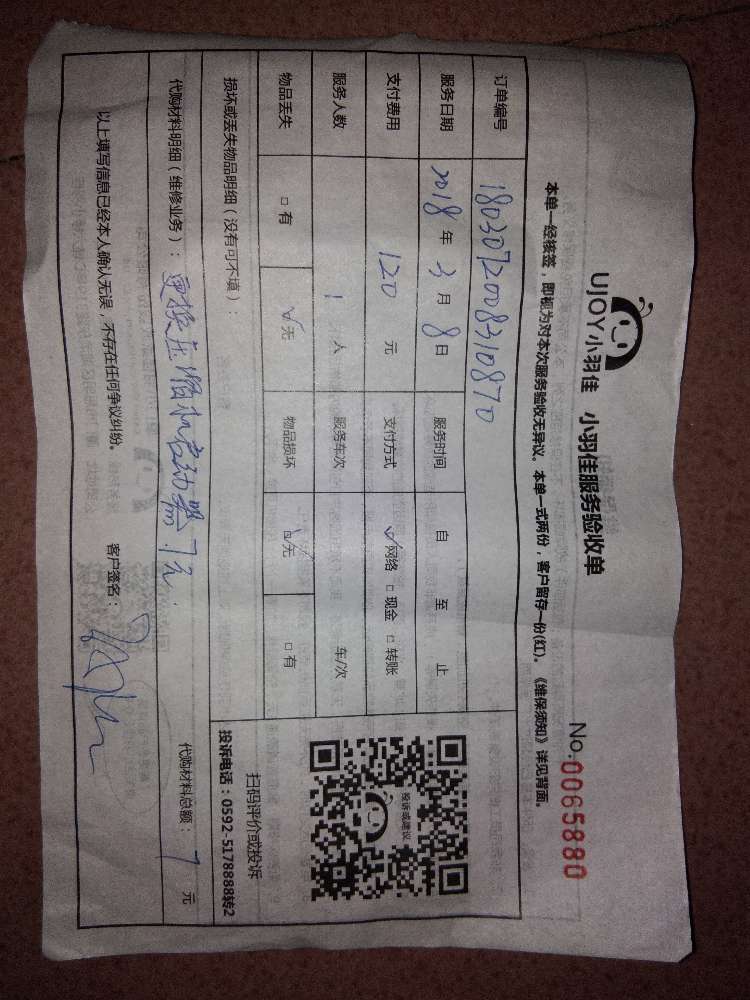 UJOY小羽佳 小羽佳服务验收单
No.0065880
本单一经核签，即视为对本次服务验收无异议。本单一式两份，客户留存一份(红)。《维保须知》详见背面。
订单编号 1803072008310870
服务日期 2018年3月8日 服务时间 自 至 止
支付费用 120元 支付方式 ☑网络 □现金 □转账
服务人数 1人 服务车次 车/次
物品丢失 □有 ☑无 物品损坏 ☑无 □有
投诉或建议
扫码评价或投诉
投诉电话：0592-5178888转2
损坏或丢失物品明细（没有可不填）：
代购材料明细（维修业务）：更换压缩机启动器7元. 代购材料总额：7元
以上填写信息已经本人确认无误，不存在任何争议纠纷。 客户签名：